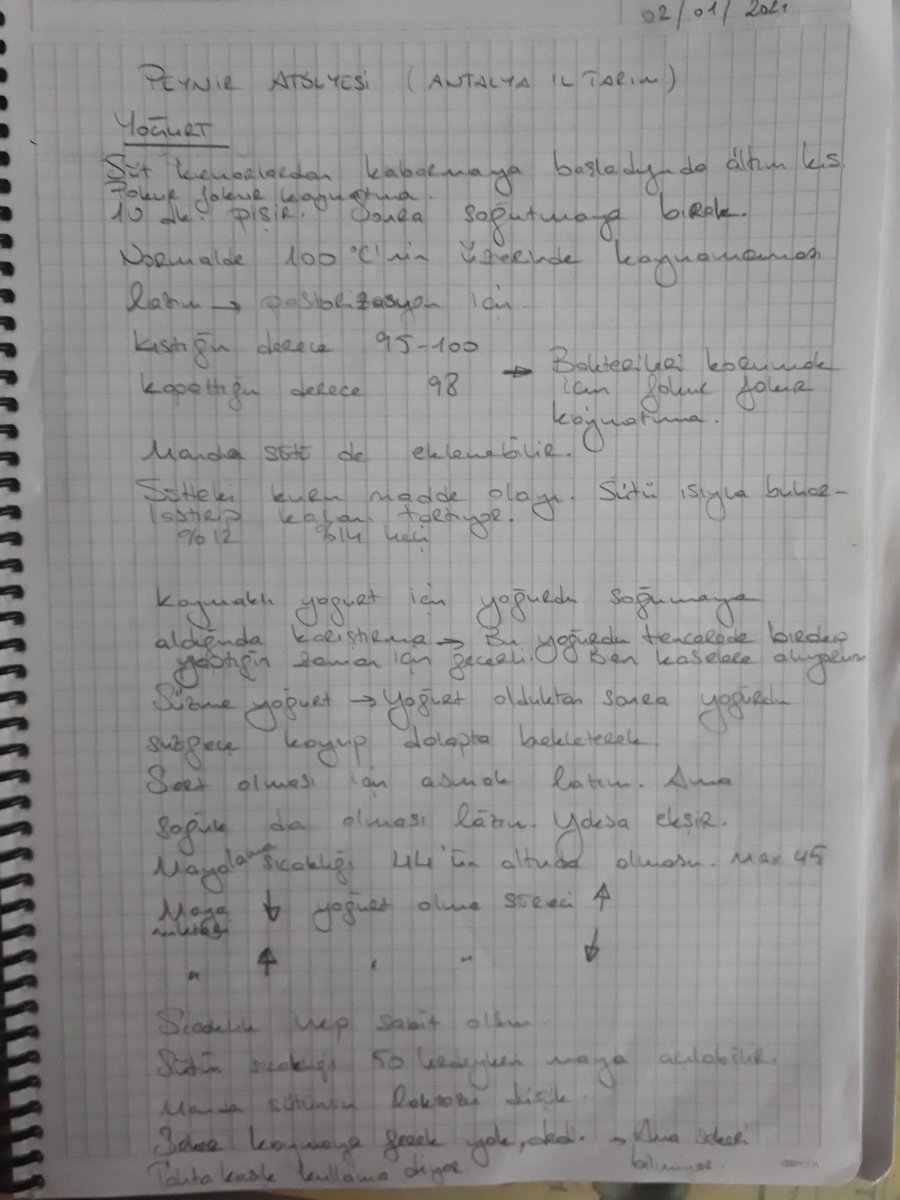 02/01/2021
PEYNİR ATÖLYESİ (ANTALYA İL TARIM)
YOĞURT
Süt kenarlardan kabarmaya başladığında altını kıs.
Fokur fokur kaynatma.
10 dk. pişir. Sonra soğutmaya bırak.
Normalde 100°C'nin üzerinde kaynamaması
lazım → pastörizasyon için.
Kıstığın derece 95-100
Kapattığın derece 98 → Bakterileri korumak
için fokur fokur
kaynatma.
Manda sütü de eklenebilir.
Sütteki kuru madde olayı. Sütü ısıyla buhar-
laştırıp kalanı tartıyor.
%12 %14 keçi
Kaymaklı yoğurt için yoğurdu soğumaya
aldığında karıştırma → Bu yoğurdu tencerede
yaptığın zaman için geçerli. Ben kaselere alıyorum
Süzme yoğurt → Yoğurt olduktan sonra yoğurdu
süzgece koyup dolapta bekleterek.
Sert olması için asmak lazım. Ama
soğuk da olması lâzım. Yoksa ekşir.
Mayalama sıcaklığı 44'ün altında olmasın. Max 45
Maya ↓ yoğurt olma süreci ↑
miktarı
" ↑ " " ↓
Sıcaklık hep sabit olsun.
Sütün sıcaklığı 50 maya açılabilir.
Manda sütünün laktozu düşük.
Şeker koymaya gerek yok, dedi. → Ama şekeri
bilmiyor.
Tahta kaşık kullanma diyor